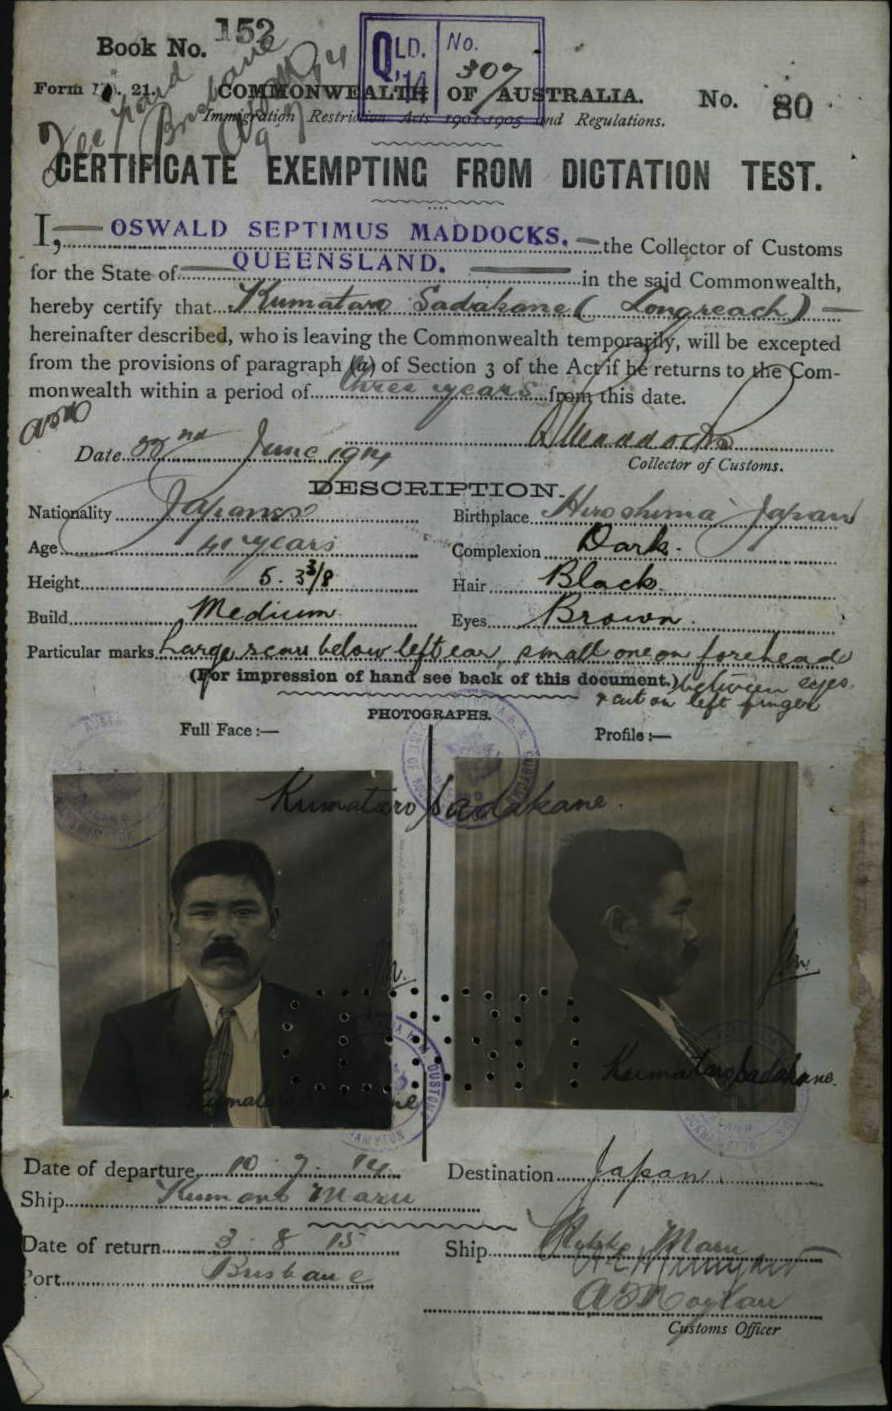 Book No. 152
QLD. 14 No. 307
Form No. 21.
COMMONWEALTH OF AUSTRALIA. No. 80
Immigration Restriction Acts 1901-1905 and Regulations.
Brisbane
CERTIFICATE EXEMPTING FROM DICTATION TEST.
I, OSWALD SEPTIMUS MADDOCKS, the Collector of Customs
for the State of QUEENSLAND. in the said Commonwealth,
hereby certify that Kumataro Sadakane (Longreach)
hereinafter described, who is leaving the Commonwealth temporarily, will be excepted
from the provisions of paragraph (a) of Section 3 of the Act if he returns to the Com-
monwealth within a period of three years from this date.
O S Maddocks
Date 22nd June 1914
Collector of Customs.
DESCRIPTION.
Nationality Japanese Birthplace Hiroshima Japan
Age 41 years Complexion Dark.
Height 5. 3 3/8 Hair Black
Build Medium Eyes Brown.
Particular marks Large scar below left ear, small one on forehead
(For impression of hand see back of this document.) between eyes
& cut on left finger
PHOTOGRAPHS.
Full Face :— Profile :—
Kumataro Sadakane.
Kumataro Sadakane.
Date of departure 10. 7. 14 Destination Japan
Ship Kumano Maru
Date of return 3. 8. 15 Ship Maru
Port Brisbane
Customs Officer